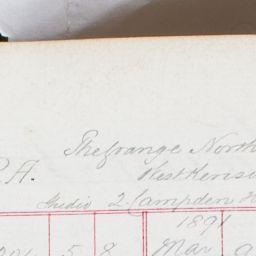 The Grange North
West Kensi
P A.
Studio 2 Campden H
1891
5 8 Mar